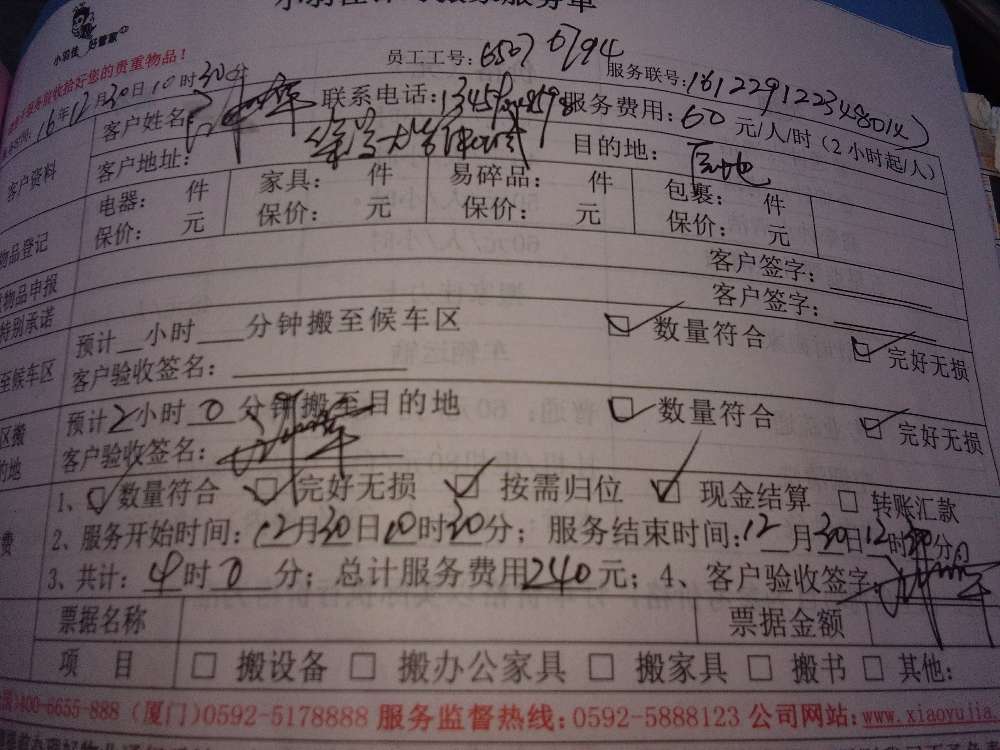 小羽佳 好管家
员工工号: 6507 6794 服务联号: 161229122348014
16年12月30日10时30分
客户资料
客户姓名: 联系电话: 服务费用: 60 元/人/时(2小时起/人)
客户地址: 目的地: 原地
物品登记
电器: 件 家具: 件 易碎品: 件 包裹: 件
保价: 元 保价: 元 保价: 元 保价: 元
物品申报 客户签字:
特别承诺 客户签字:
至候车区 预计__小时___分钟搬至候车区 数量符合 完好无损
客户验收签名:
区搬 预计2小时 0 分钟搬至目的地 数量符合 完好无损
的地 客户验收签名:
1、数量符合 完好无损 按需归位 现金结算 转账汇款
费 2、服务开始时间: 12月30日10时30分; 服务结束时间: 12月30日12时30分
3、共计: 4时0分; 总计服务费用240元; 4、客户验收签字:
票据名称 票据金额
项 目 搬设备 搬办公家具 搬家具 搬书 其他:
)400-6655-888 (厦门)0592-5178888 服务监督热线: 0592-5888123 公司网站: www.xiaoyujia.